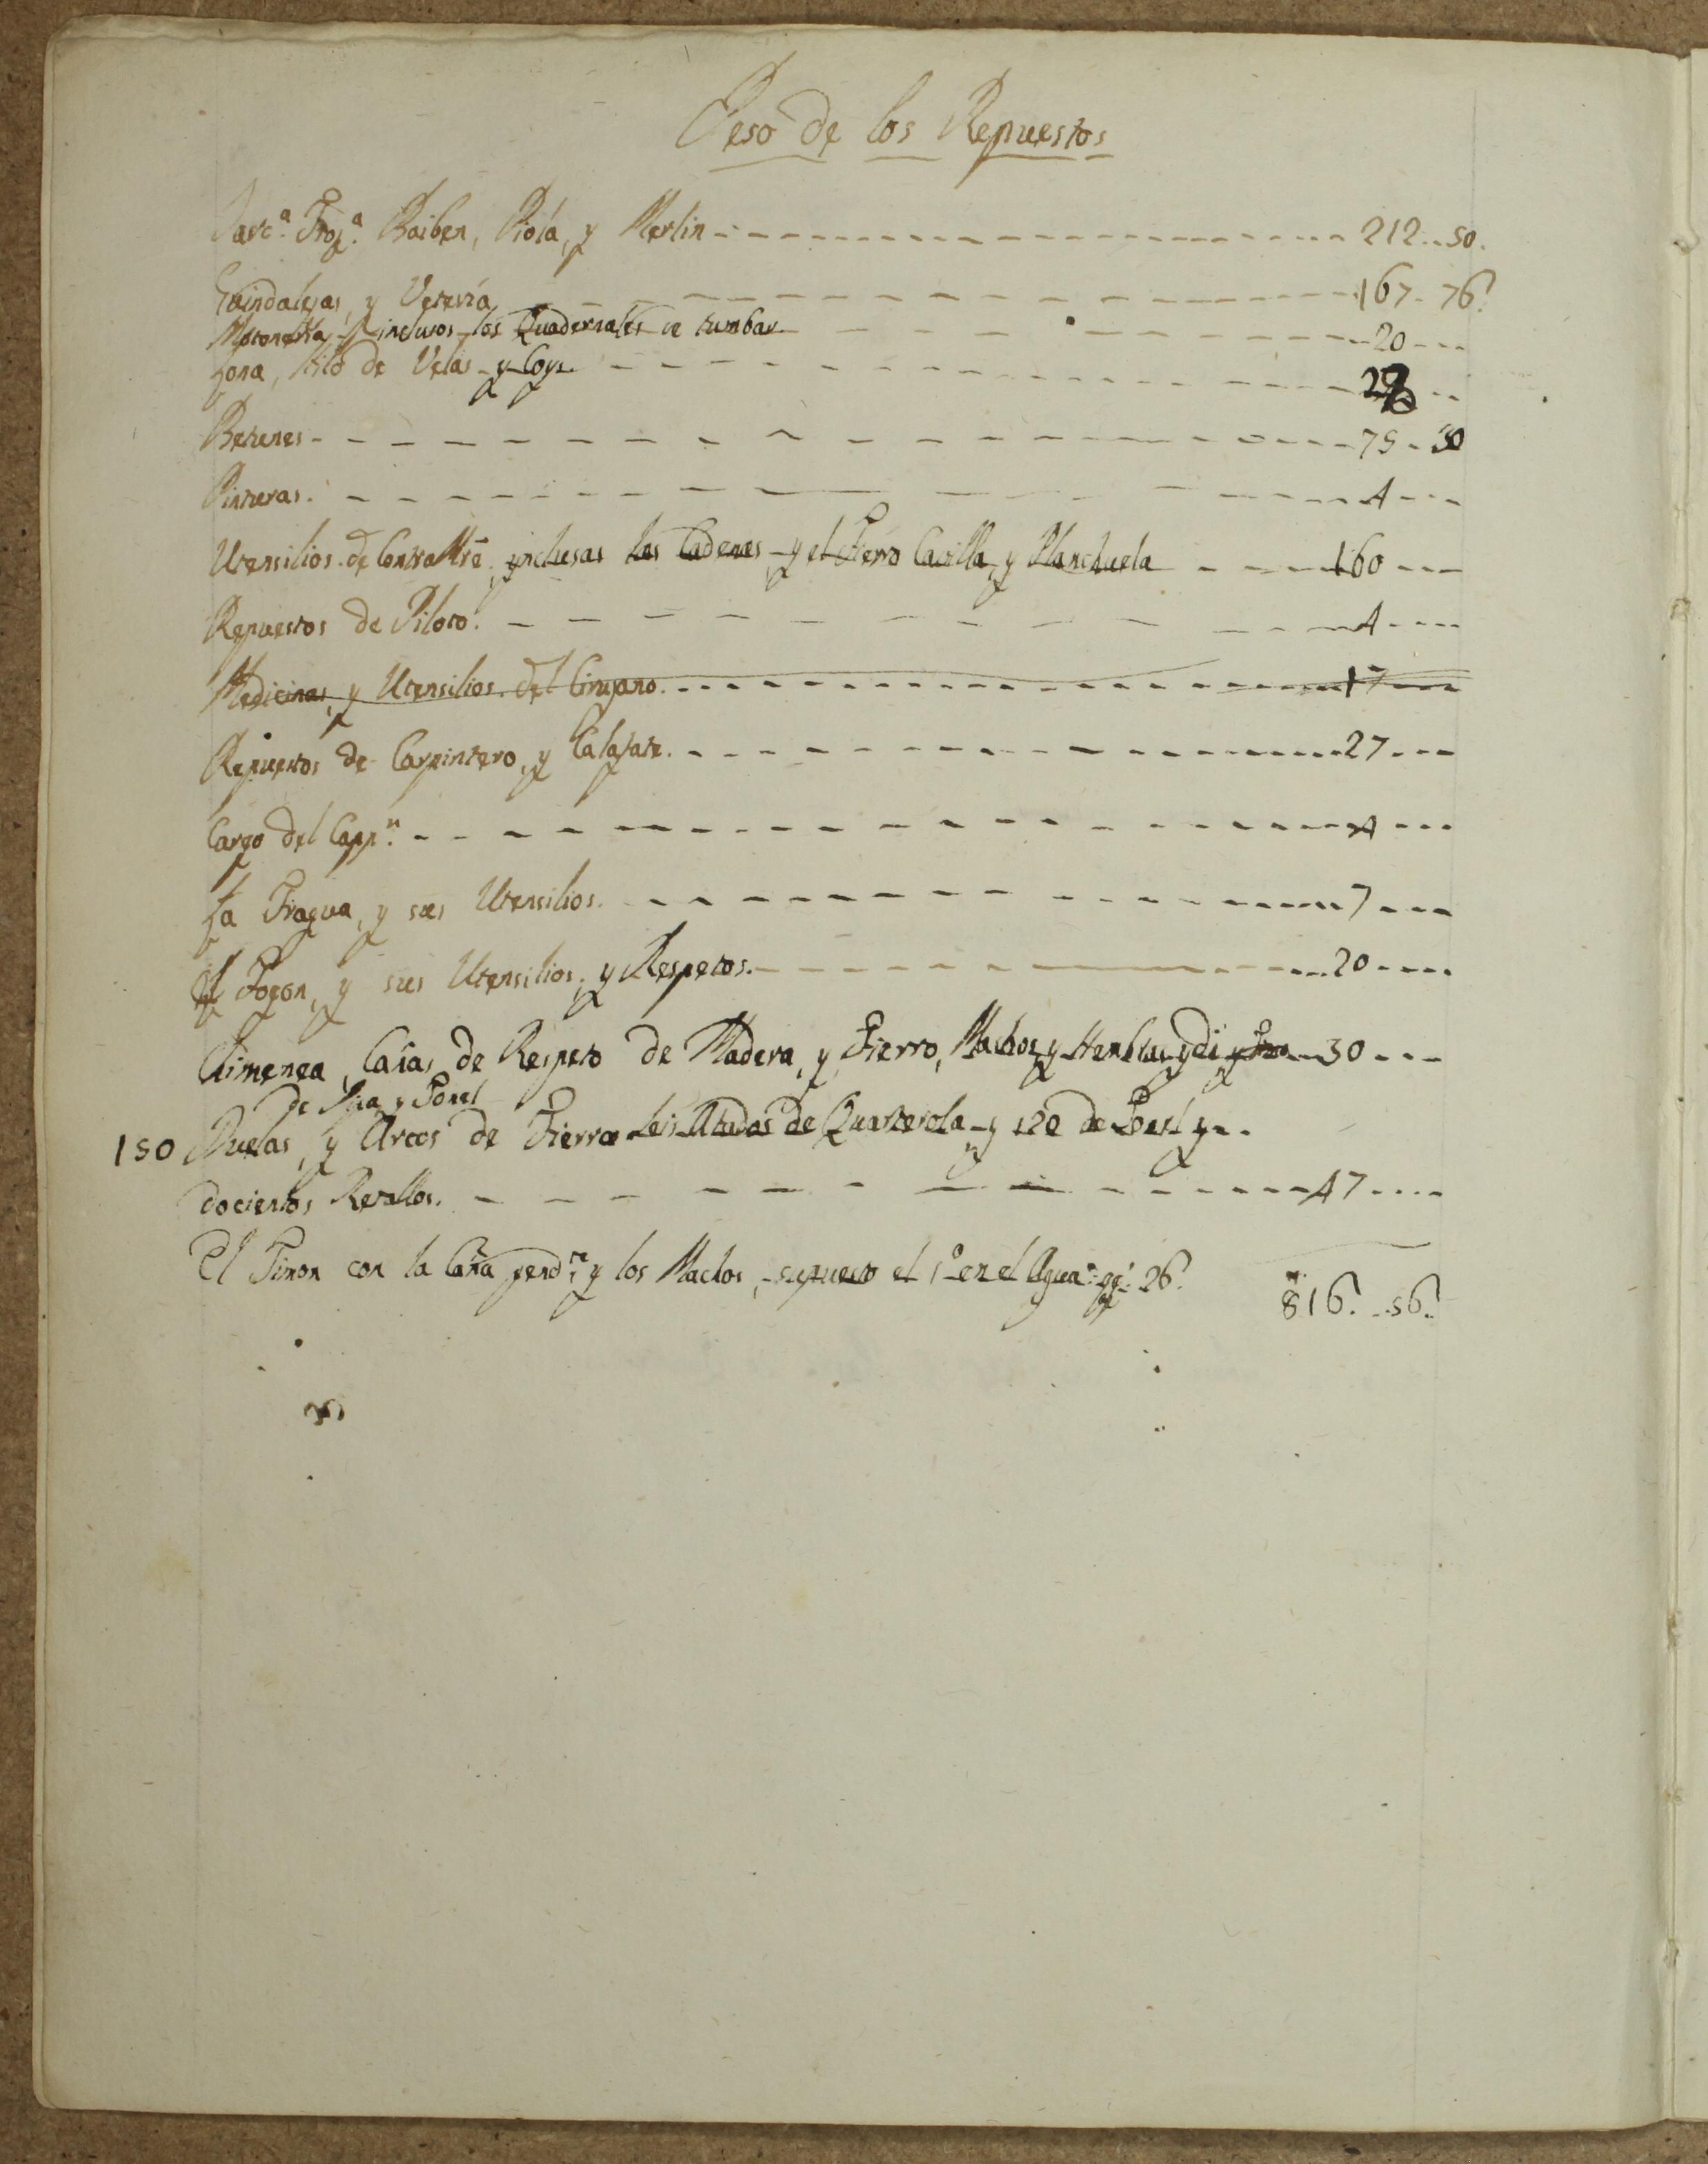 Peso de los Repuestos
Jarc.ª Troz.ª Baiben, Piola, y Merlin 212..50.
Guindalezas, y Veteria 167. 76.
Motoneria inclusos los Quadernales de tumbar 20
Lona, hilo de Velas y Coys.
Betunes 75.30
Pinturas. 4
Utensilios de Contra Mre. inclusas las Cadenas y el Fierro Cavilla, y Planchuela 160
Repuestos de Piloto. 4
Medicinas, y Utensilios del Cirujano. 17
Repuestos de Carpintero, y Calafate. 27
Cargo del Capp.n 4
La Fragua, y sus Utensilios. 7
El Fogon, y sus Utensilios, y Respetos. 20
Chimenea, Cañas de Respeto de Madera, y Fierro, Machos y Hembras 30
de Pipa y Tonel
150 Duelas, y Arcos de Fierro Atados de Quarterola y 120 de
docientos Retallos. 47
El Timon con la Caña pend.te y los Machos, supuesto el 1º en el Agua 26.
816. 56.